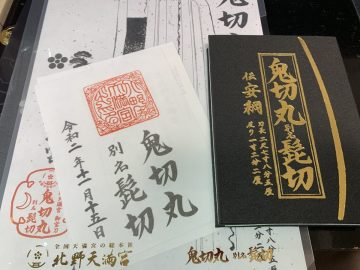 鬼切丸
別名
髭切
令和二年十一月十五日
鬼切丸
別名
髭切
全国天満宮の総本社
北野天満宮
鬼切丸 別名 髭切
鬼切丸 別名 髭切
伝 安綱
刃長二尺七寸八分五厘
反り一寸二分二厘